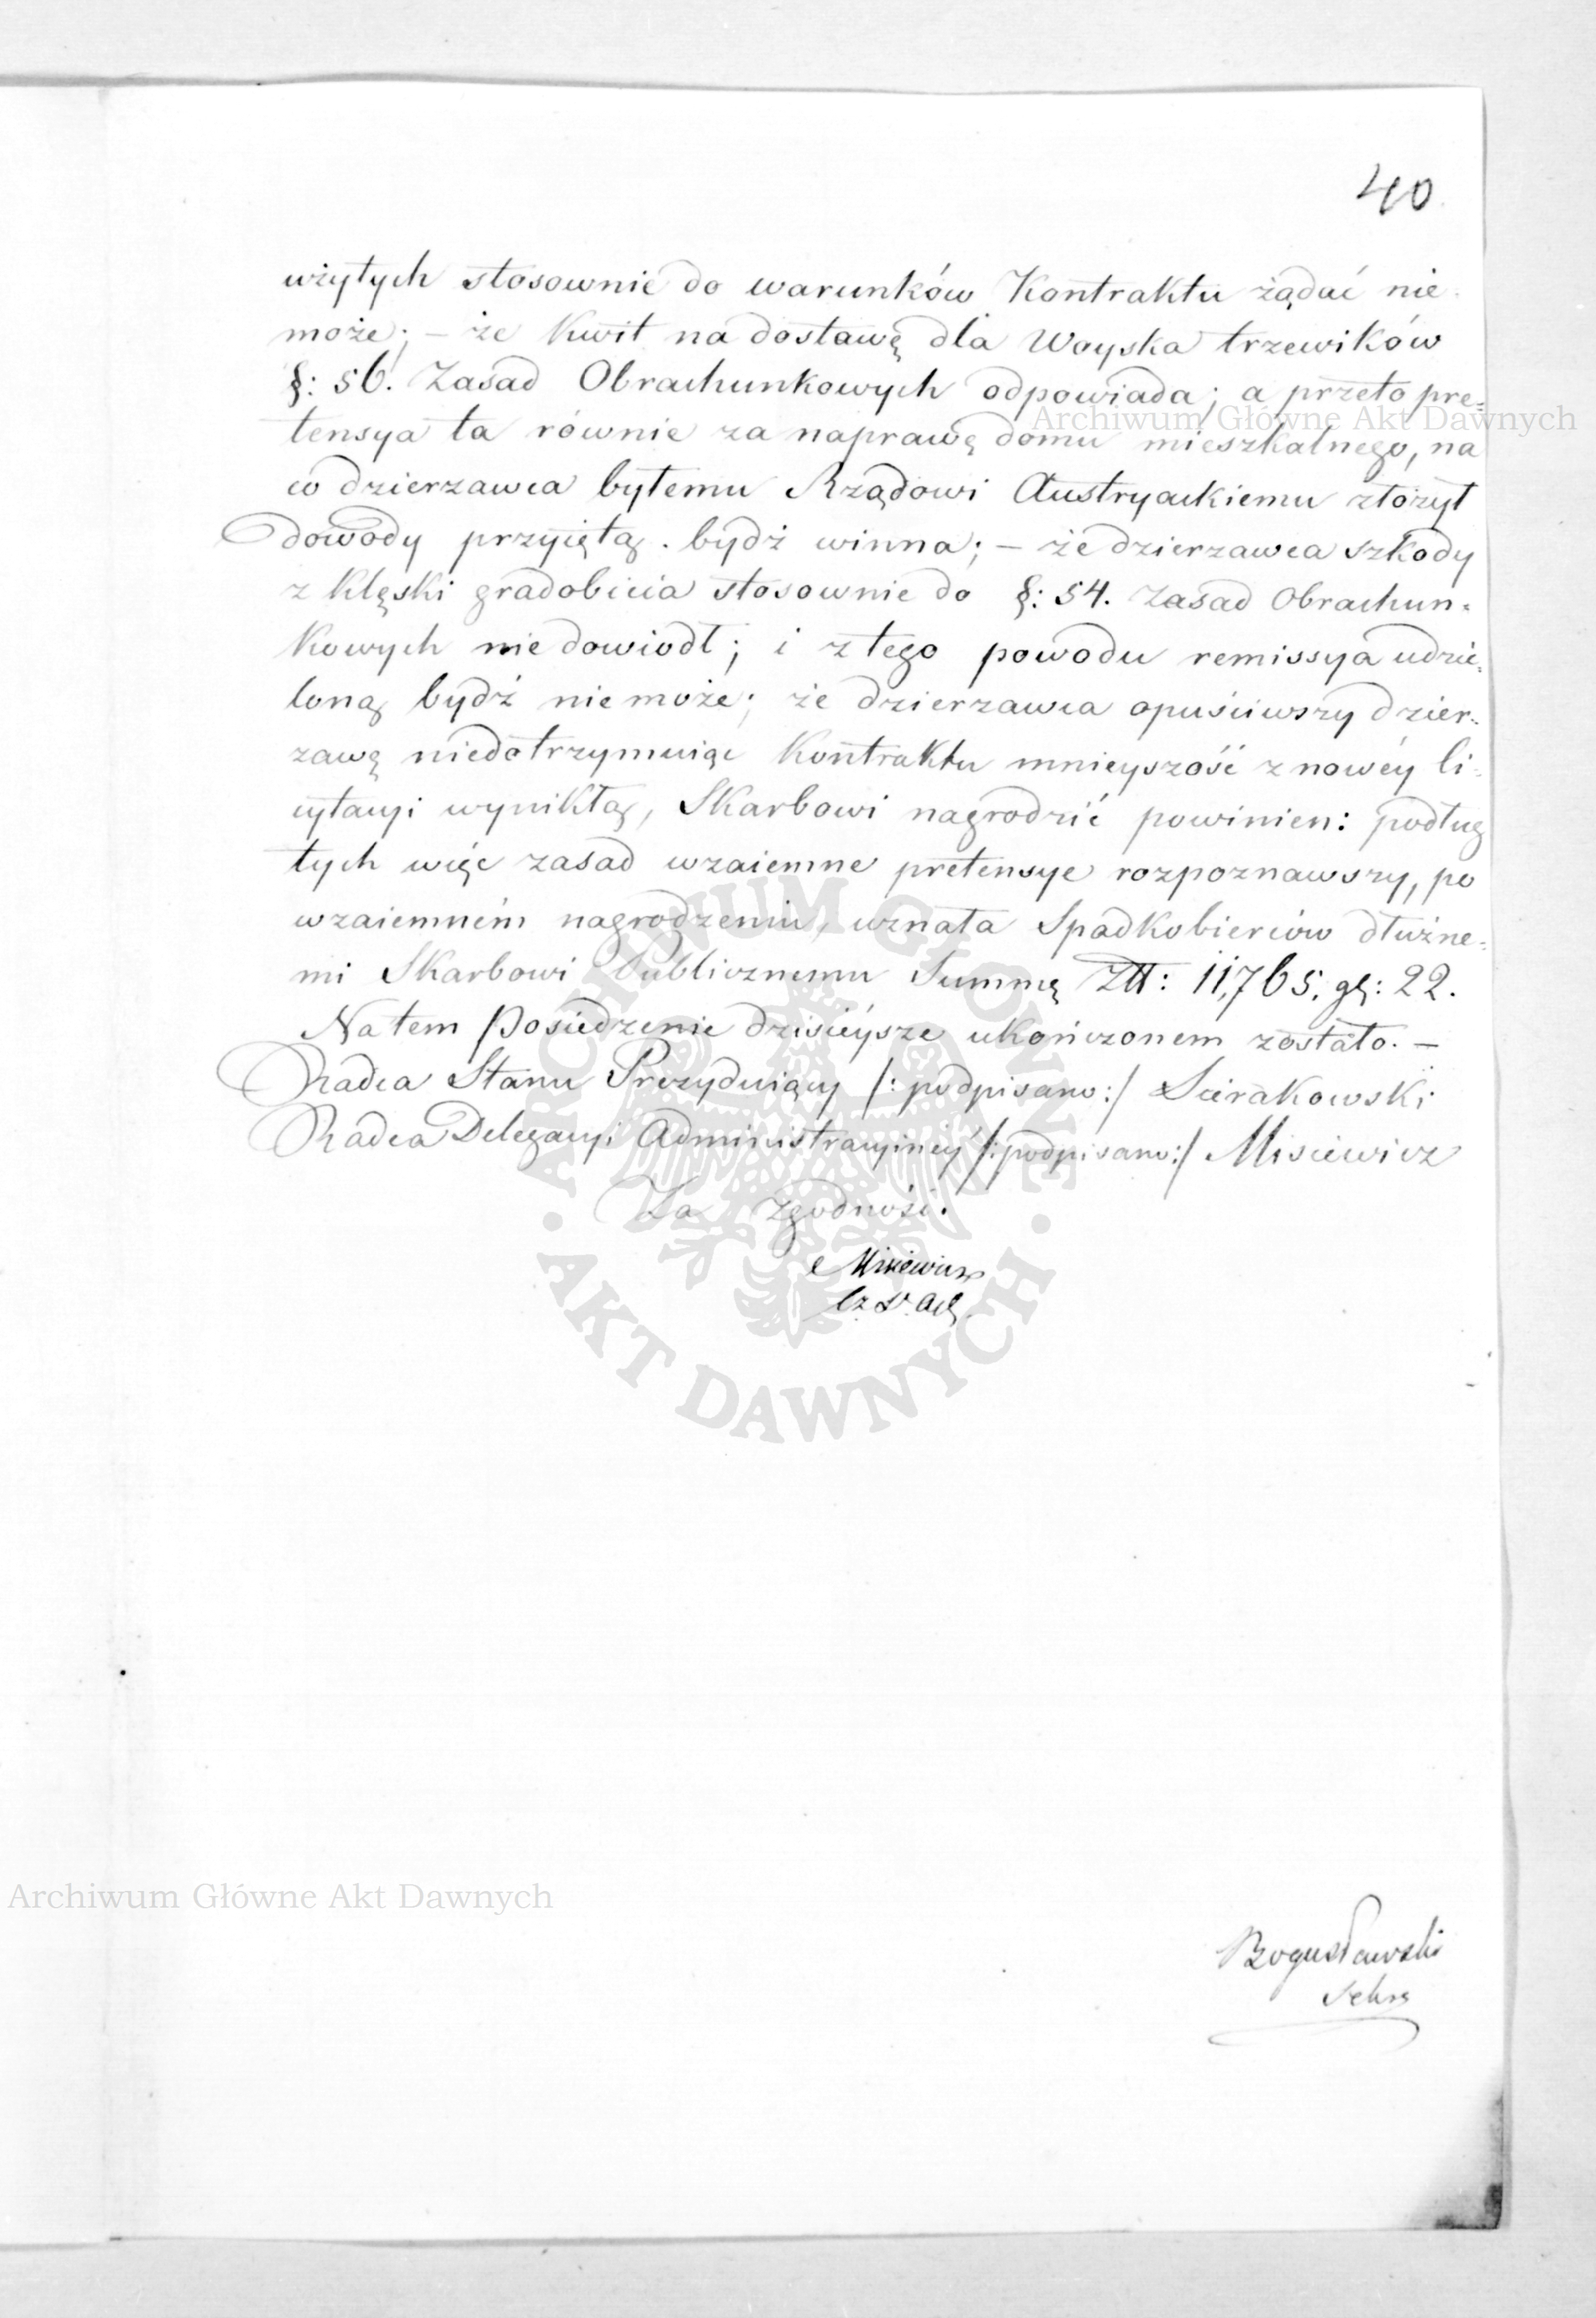 40
wżytych stosownie do warunków Kontraktu żądać nie
może; – że Kwit na dostawę dla Woyska trzewików
§: 56. Zasad Obrachunkowych odpowiada; a przeto pre=
tensya ta równie za naprawę domu mieszkalnego, na
co dzierzawca byłemu Rządowi Austryackiemu złożył
dowody przyiętą bydź winna; – że dzierzawca szkody
z klęski gradobicia stosownie do §: 54. Zasad Obrachun=
kowych nie dowiodł; i z tego powodu remissya udzie=
loną bydź nie może; że dzierzawca opuściwszy dzier=
zawę niedotrzymuiąc Kontraktu mnieyszość z nowéy li=
cytacyi wynikłą, Skarbowi nagrodzić powinien: podług
tych więc zasad wzaiemne pretensye rozpoznawszy, po
wzaiemném nagrodzeniu, uznała Spadkobierców dłużne=
mi Skarbowi Publicznemu Summę Złł: 11,765. gę: 22.
Na tem Posiedzenie dzisieysze ukończonem zostało. –
Radca Stanu Prezyduiący /: podpisano :/ Sierakowski
Radca Delegacyi Administracyiney /: podpisano :/ Misiewicz
Za Zgodność.
Misiewicz
Bogusławski
Sekrę
Archiwum Główne Akt Dawnych
ARCHIWUM GŁÓWNE
· AKT DAWNYCH ·
Archiwum Główne Akt Dawnych